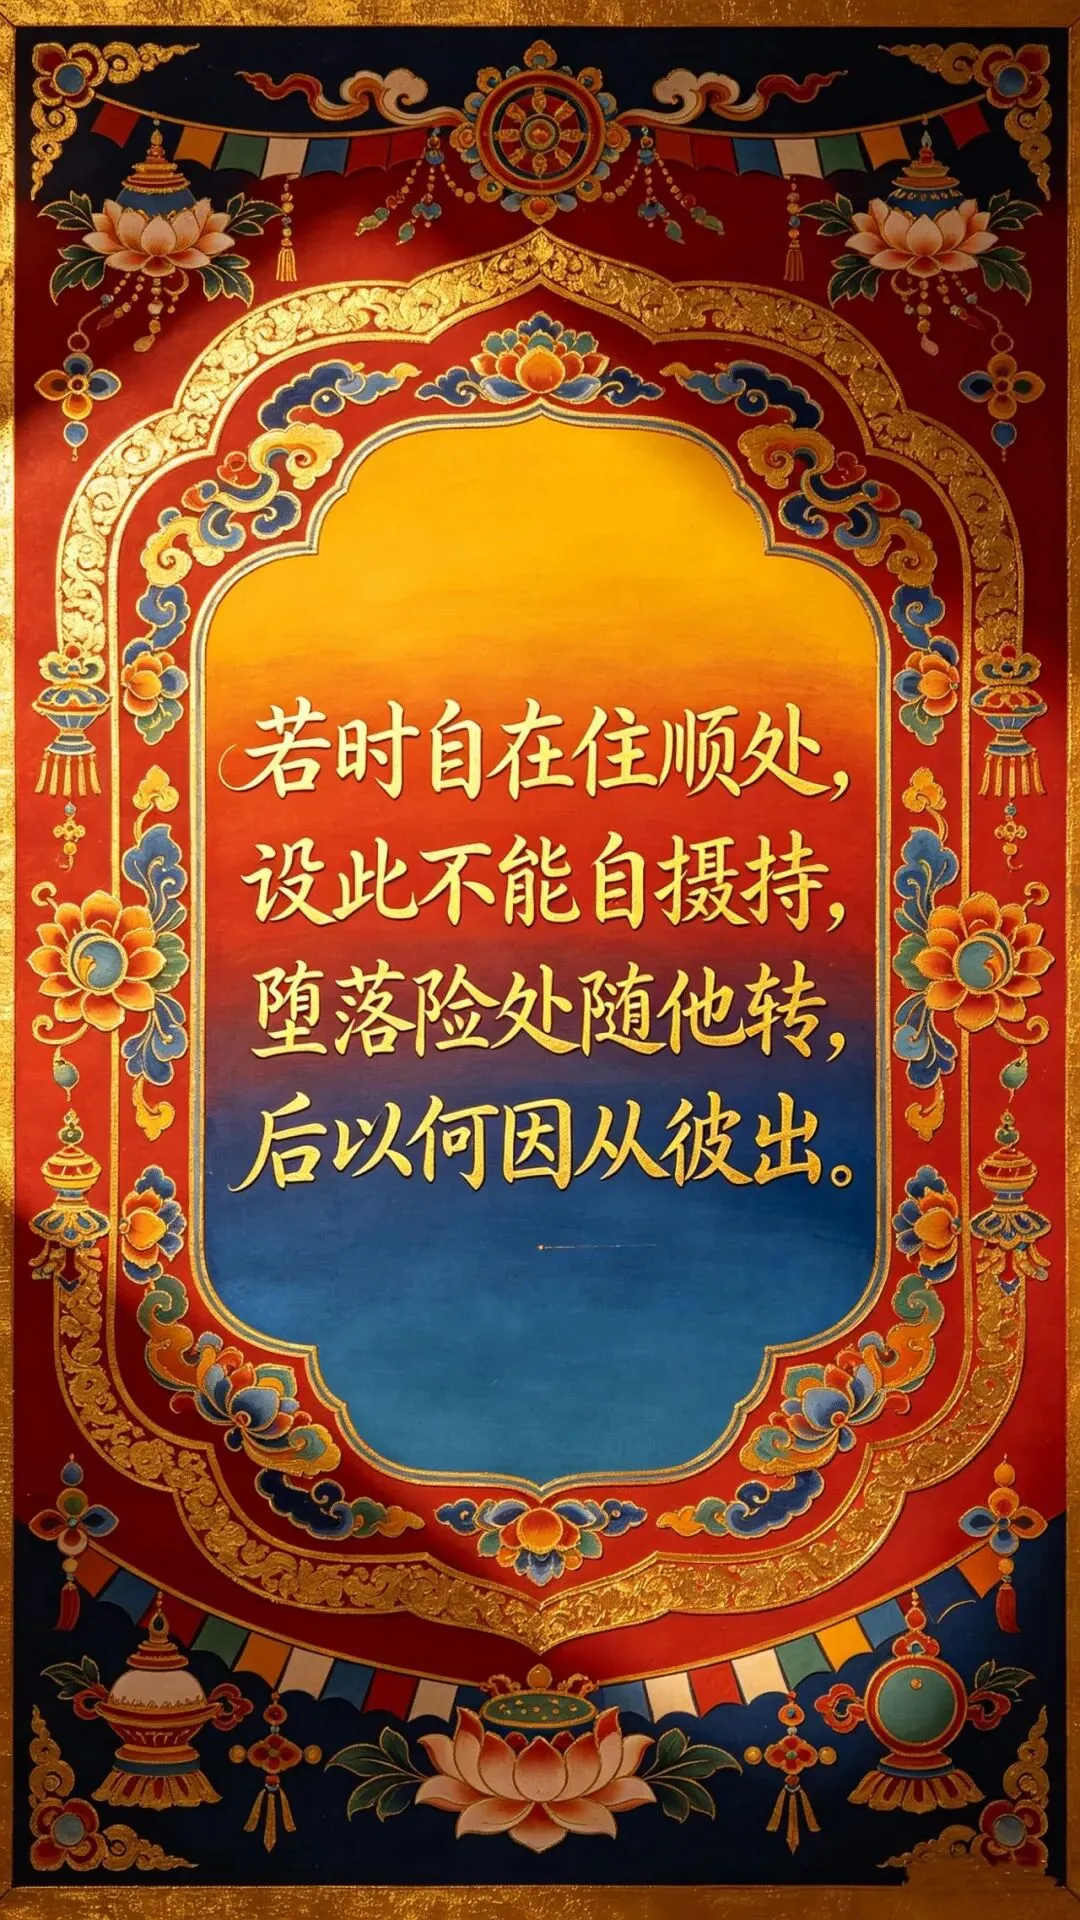 若时自在住顺处，
设此不能自摄持，
堕落险处随他转，
后以何因从彼出。